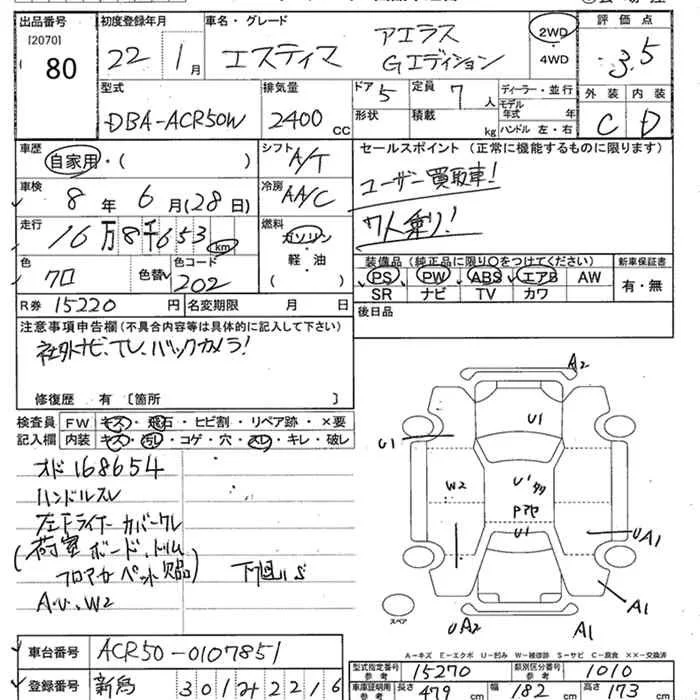 出品番号 初度登録年月 車名・グレード 2WD・4WD 評価点
[2070]
80 22年 1月 エスティマ アエラス Gエディション 3.5
型式 排気量 ドア 5 定員 7人 ディーラー・並行 外装 内装
DBA-ACR50W 2400cc 形状 積載 kg モデル年式 年 ハンドル 左・右 C D
車歴 自家用・( ) シフト A/T セールスポイント (正常に機能するものに限ります)
車検 8年 6月(28日) 冷房 AA/C ユーザー買取車!
走行 16万8千653km 燃料 ガソリン・軽・油 ( ) 7人乗り!
色 クロ 色替 色コード 202
装備品 (純正品に限り〇をつけてください) 新車保証書
PS PW ABS エアB AW 有・無
SR ナビ TV カワ
R券 15220円 名変期限 月 日 後日品
注意事項申告欄(不具合内容等は具体的に記入して下さい)
社外ナビ、TV、バックカメラ!
修復歴 有 〔箇所 〕
検査員 FW キズ・飛石・ヒビ割・リペア跡・×要
記入欄 内装 キズ・汚レ・コゲ・穴・スレ・キレ・破レ
オド 168654
ハンドルスレ
左Fライナー カバークレ
(荷室ボード、トリム
フロアカーペット欠品) 下廻りS
A.U.W2
A2
U1
U1
W2
U1
U1
UA1
A1
UA2
A1
スペア
A-キズ E-エクボ U-凹み W-補修跡 S-サビ C-腐食 ××-交換済
車台番号 ACR50-0107851
登録番号 新潟 301
型式指定番号 参考 15270 類別区分番号 参考 1010
車庫証明用 参考 長さ 479cm 幅 182cm 高さ 173cm